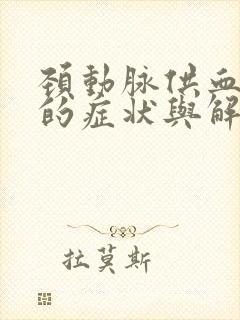 頸動脉供血
的症状與解
拉莫斯